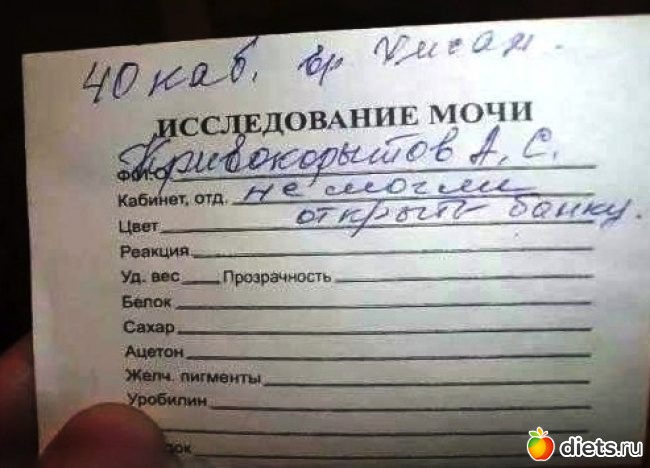 40 каб. вр
ИССЛЕДОВАНИЕ МОЧИ
Ф.И.О. Кривокорытов А. С.
Кабинет, отд. не могли
Цвет открыть банку.
Реакция
Уд. вес Прозрачность
Белок
Сахар
Ацетон
Желч. пигменты
Уробилин
док
diets.ru